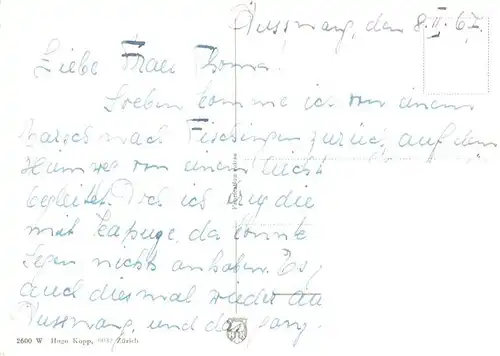 Dussnang, den 8. II. 67.
Liebe Frau Thoma.
Soeben komme ich von einem
Marsch nach Fischingen zurück, auf dem
Heimweg von einem leicht
begleitet. Doch ich trug die
mit Kapuze, da konnte
Regen nichts anhaben. Es
auch diesmal wieder an
Dussnang, und das ganz
2600 W Hugo Kopp, Zürich